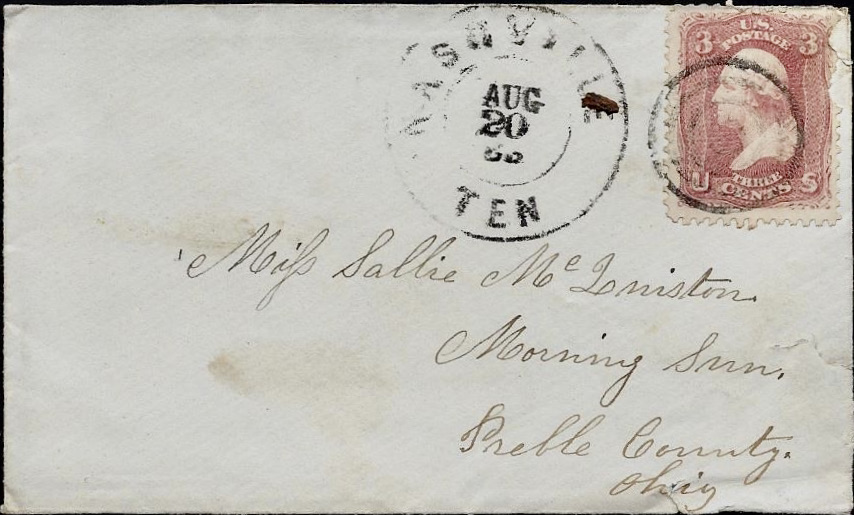 NASHVILLE
AUG
20
TEN
U.S.
POSTAGE
3 3
THREE
CENTS
U S
Miss Sallie McQuiston.
Morning Sun.
Preble County.
Ohio